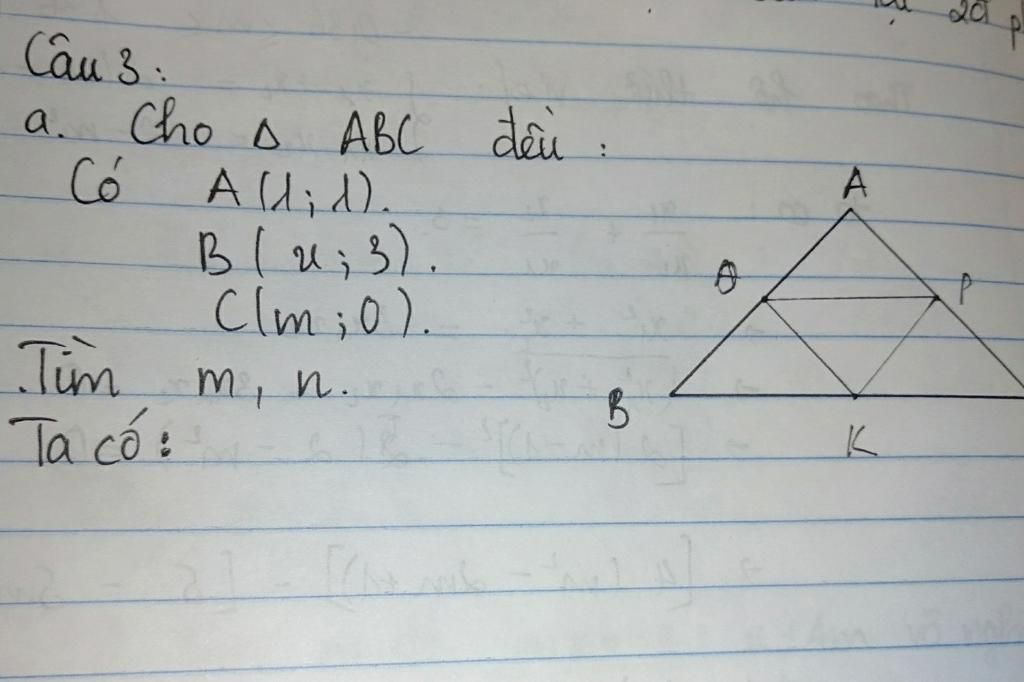 20 p
Câu 3:
a. Cho Δ ABC đều:
Có A(1; 1).
B(n; 3).
C(m; 0).
Tìm m, n.
Ta có:
A
Q
P
B
K